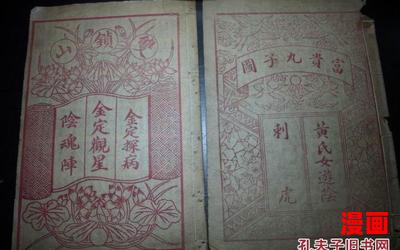 雙鎖山
金定探病
金定觀星
陰魂陣
富貴九子圖
黃氏女遊陰
刺虎
漫画
孔夫子旧书网